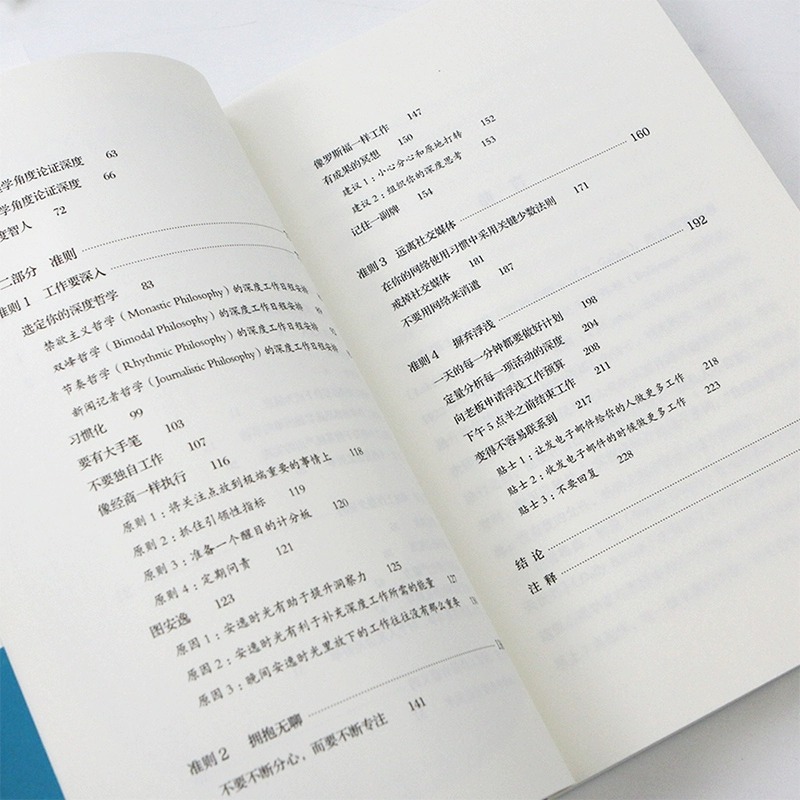 学角度论证深度 63
学角度论证深度 66
度智人 72
二部分 准则
准则 1 工作要深入
选定你的深度哲学 83
禁欲主义哲学（Monastic Philosophy）的深度工作日程安排
双峰哲学（Bimodal Philosophy）的深度工作日程安排
节奏哲学（Rhythmic Philosophy）的深度工作日程安排
新闻记者哲学（Journalistic Philosophy）的深度工作日程安排
习惯化 99
要有大手笔 103
不要独自工作 107
像经商一样执行 116
原则 1：将关注点放到极端重要的事情上 118
原则 2：抓住引领性指标 119
原则 3：准备一个醒目的计分板 120
原则 4：定期问责 121
图安逸 123
原因 1：安逸时光有助于提升洞察力 125
原因 2：安逸时光有利于补充深度工作所需的能量 127
原因 3：晚间安逸时光里放下的工作往往没有那么重要
准则 2 拥抱无聊
不要不断分心，而要不断专注 141
像罗斯福一样工作 147
有成果的冥想 150
建议 1：小心分心和原地打转 152
建议 2：组织你的深度思考 153
记住一副牌 154
准则 3 远离社交媒体 160
在你的网络使用习惯中采用关键少数法则 171
戒掉社交媒体 181
不要用网络来消遣 187
准则 4 摒弃浮浅 192
一天的每一分钟都要做好计划 198
定量分析每一项活动的深度 204
向老板申请浮浅工作预算 208
下午 5 点半之前结束工作 211
变得不容易联系到 217
贴士 1：让发电子邮件给你的人做更多工作 218
贴士 2：收发电子邮件的时候做更多工作 223
贴士 3：不要回复 228
结论
注释